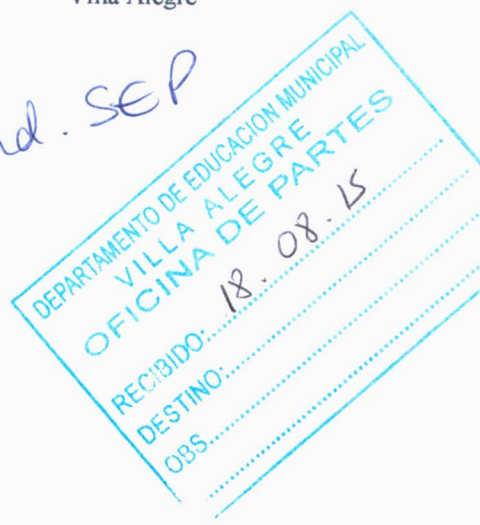 Villa Alegre
d. SEP
DEPARTAMENTO DE EDUCACION MUNICIPAL
VILLA ALEGRE
OFICINA DE PARTES
RECIBIDO: 18.08.15
DESTINO:
OBS.